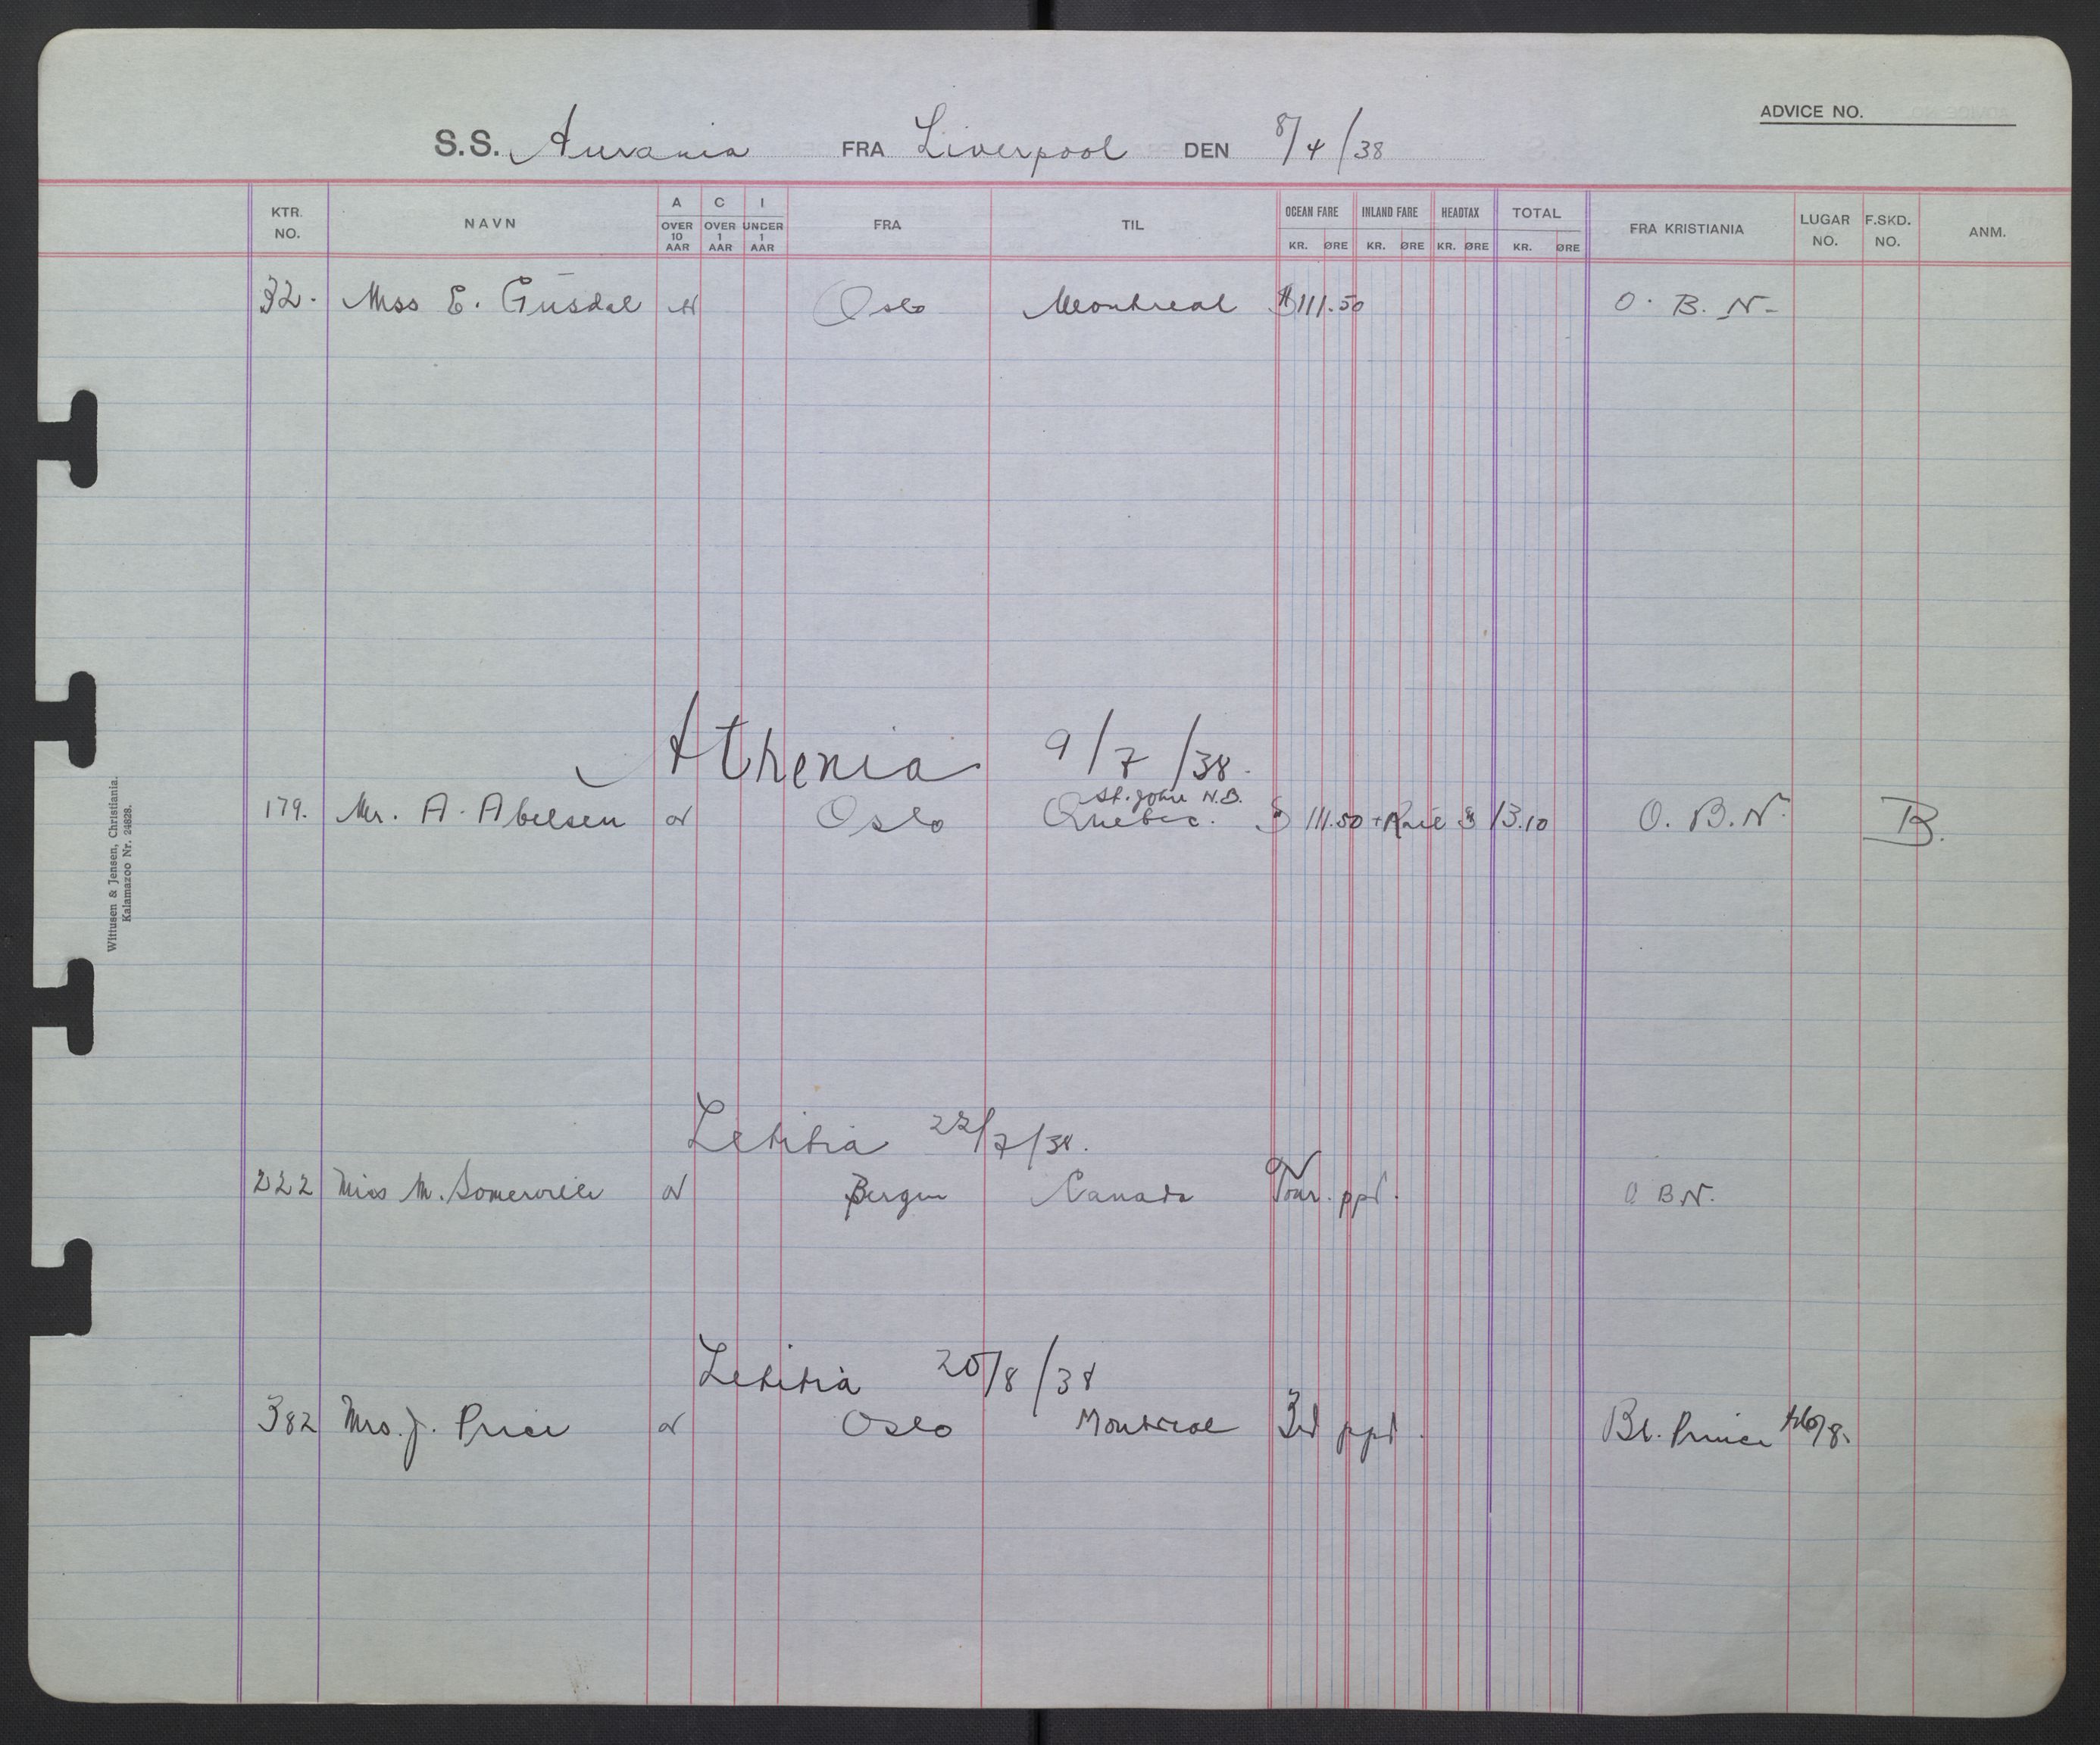 ADVICE NO.
S.S. Aurania FRA Liverpool DEN 8/4/38
KTR. NO. NAVN A OVER 10 AAR C OVER 1 AAR I UNDER 1 AAR FRA TIL OCEAN FARE KR. ØRE INLAND FARE KR. ØRE HEADTAX KR. ØRE TOTAL KR. ØRE FRA KRISTIANIA LUGAR NO. F.SKD. NO. ANM.
32. Miss E. Gusdal Oslo Montreal $111.50 O. B. N.
Athenia 9/7/38.
St. John N.B.
179. Mr. A. Abelsen Oslo Quebec. $ 111.50 + Rail $ 13.10 O. B. N. B.
Letitia 22/7/38.
222 Miss M. Somerville Bergen Canada Tour. ppd. O B N.
Letitia 20/8/38
382 Mrs. J. Price Oslo Montreal 3rd ppd. Bl. Prince
Wittusen & Jensen, Christiania.
Kalamazoo Nr. 24828.